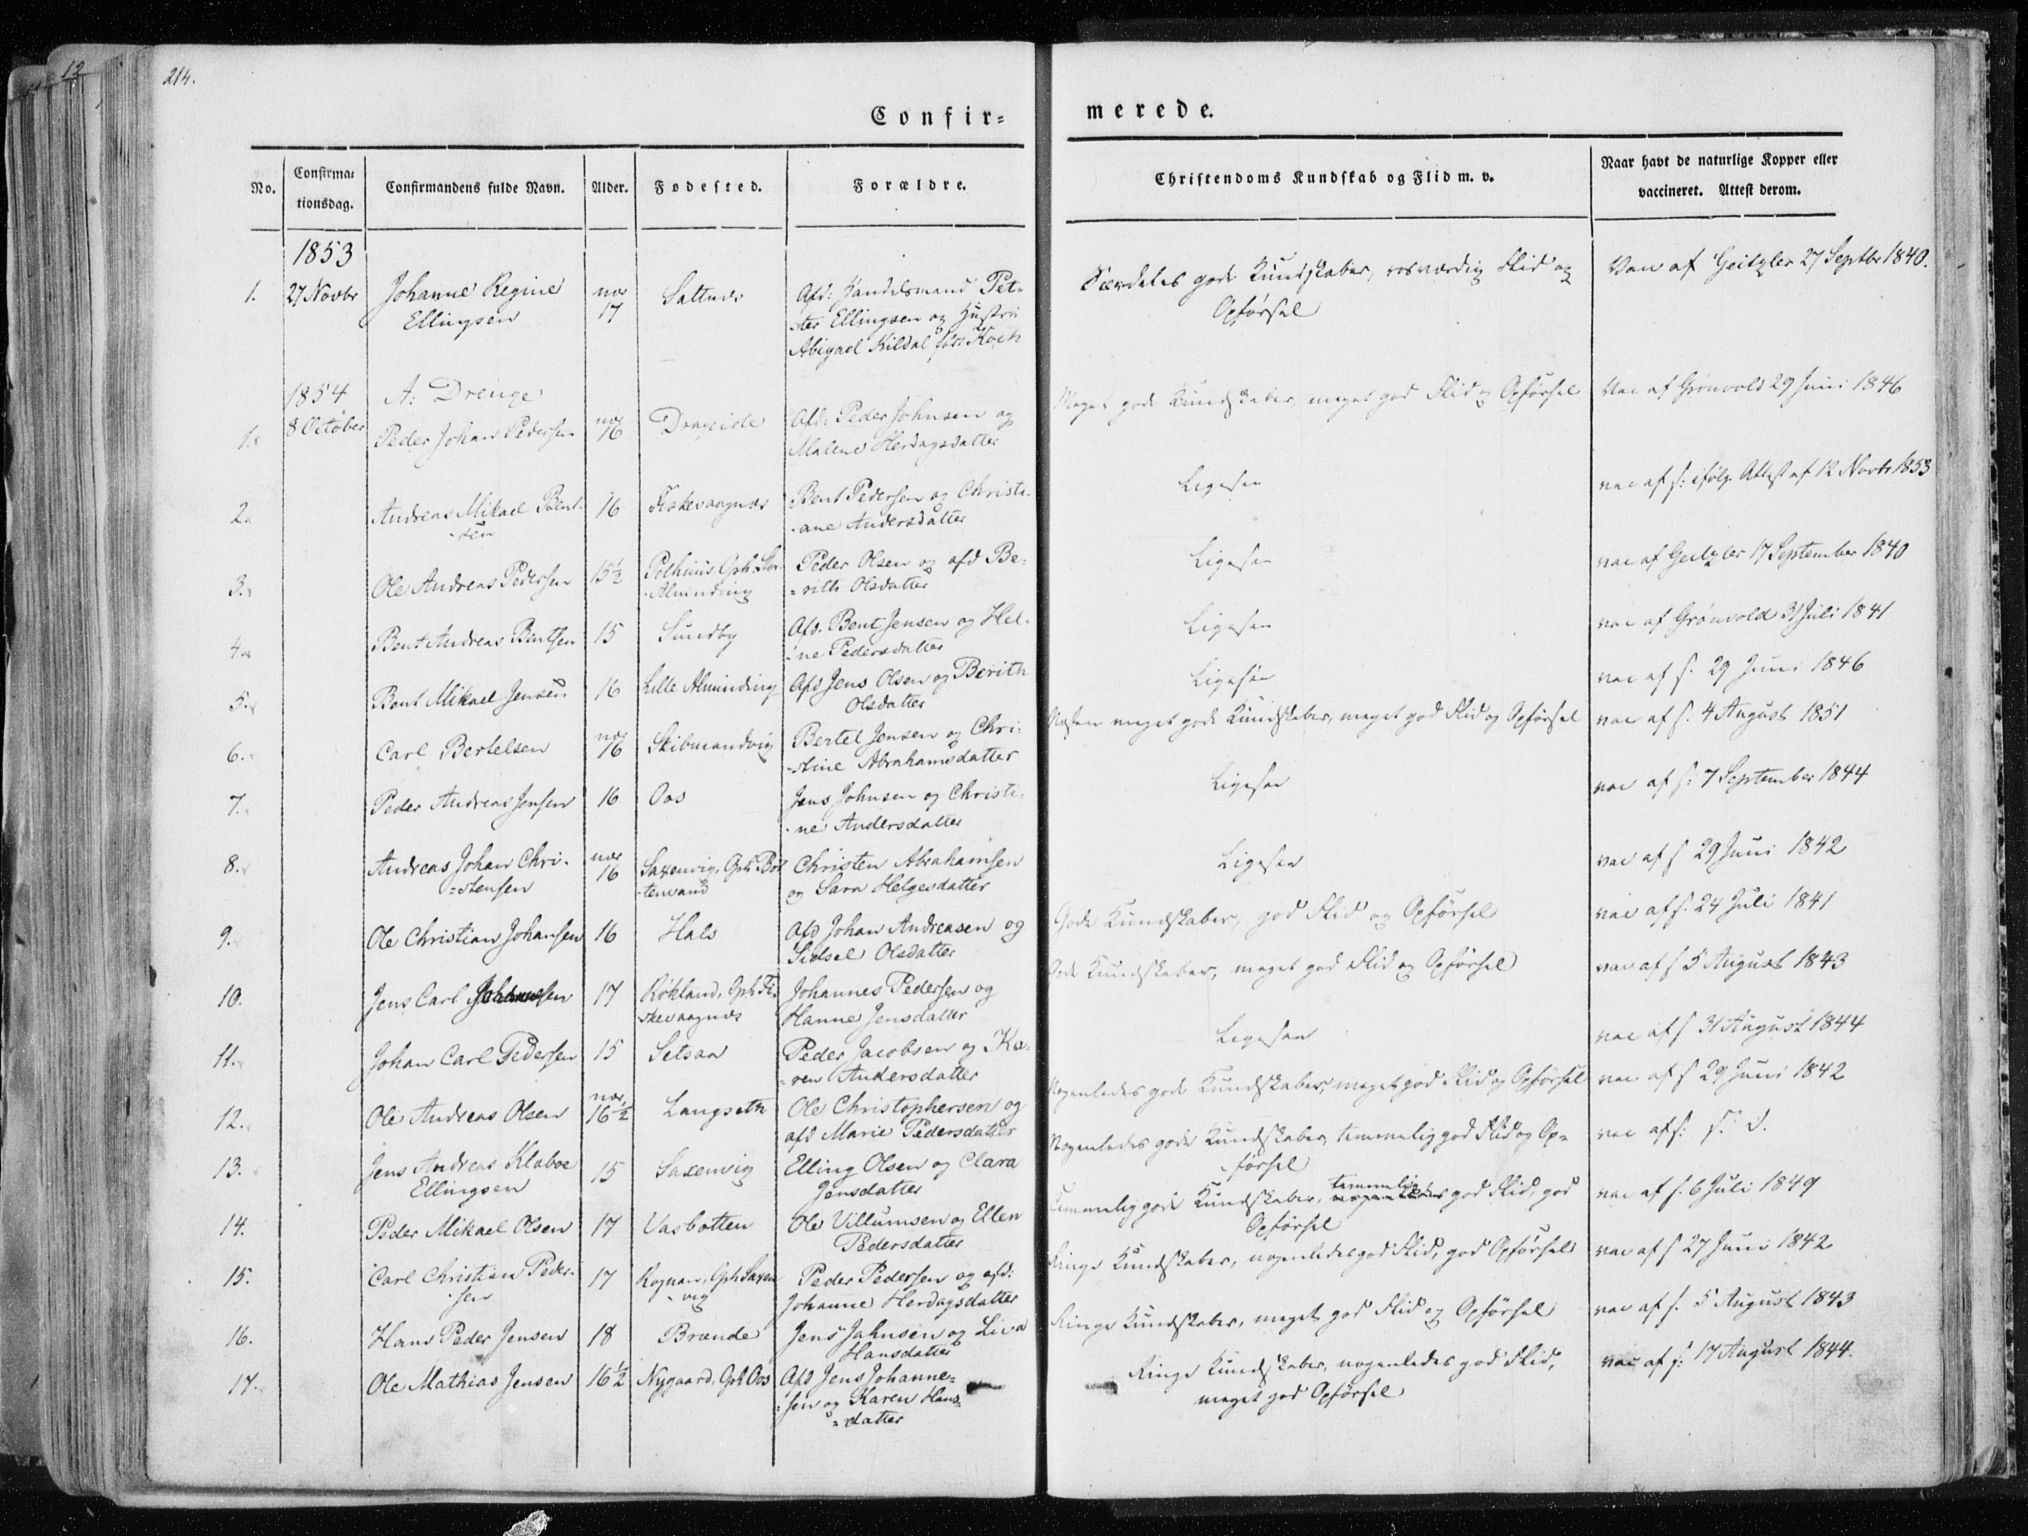 12
214.
Confir=
merede.
No.
Confirma:
tionsdag.
Confirmandens fulde Navn.
Alder.
Fodested.
Forældre.
Christendoms Kundskab og Flid m. v.
Naar havt de naturlige Kopper eller
vaccineret. Attest derom.
1853
1. 27 Novbr Johanne Regine nær Saltnæs Afd: Handelsmand Pet- Særdeles gode Kundskaber, rosværdig Flid og Vac af Geitzler 27 Septbr 1840.
Ellingsen 17 ter Ellingsen og Hustru Opførsel
Abigael Kildal født Koch
1854 A: Drenge
1. 8 October Peder Johan Pedersen nær 16 Drageide Afd: Peder Johnsen og Meget gode Kundskaber, meget god Flid og Opførsel Vac af Grønvold 29 Juni 1846
Malene Herdagsdatter
2. Andreas Mikael Bent- 16 Fiskevaagnæs Bent Pedersen og Christi- Ligesaa vac af s: ifølge Attest af 12 Novbr 1853
-sen -ane Andersdatter
3. Ole Andreas Pedersen 15½ Pothuus Oph: Stor- Peder Olsen og afd Be- Ligesaa vac af Geitzler 17 September 1840
-Alminding -rith Olsdatter
4. Bent Andreas Bentsen 15 Sundby Afd. Bent Jensen og Hel- Ligesaa vac af Grønvold 31 Juli 1841
-ne Pedersdatter
5. Bent Mikael Jensen 16 Lille Alminding Afd Jens Olsen og Berith Ligesaa vac af s. 29 Juni 1846
Olsdatter
6. Carl Bertelsen nær 16 Skibmandvig Bertel Jensen og Chri- Næsten meget gode Kundskaber, meget god Flid og Opførsel vac af s. 4 August 1851
-stine Abrahamsdatter
7. Peder Andreas Jensen 16 Oos Jens Johnsen og Christi- Ligesaa vac af s: 7 September 1844
-ne Andersdatter
8. Andreas Johan Chri- nær 16 Saxenvig, Oph Bot- Christen Abrahamsen Ligesaa vac af s 29 Juni 1842
-stensen -tenvand og Sara Helgesdatter
9. Ole Christian Johansen 16 Hals Afd Johan Andreasen og Gode Kundskaber, god Flid og Opførsel vac af s. 24 Juli 1841
Sidsel Olsdatter
10. Jens Carl Johannesen 17 Røkland, Oph Fi- Johannes Pedersen og Gode Kundskaber, meget god Flid og Opførsel vac af s 5 August 1843
skevaagnæs Hanne Jensdatter
11. Johan Carl Pedersen 15 Setsaa Peder Jacobsen og Ka- Ligesaa vac af s 31 August 1844
-ren Andersdatter
12. Ole Andreas Olsen nær 16½ Langseth Ole Christophersen og Nogenledes gode Kundskaber, meget god Flid og Opførsel vac af s 29 Juni 1842
afd Marie Pedersdatter
13. Jens Andreas Klaboe 15 Saxenvig Elling Olsen og Clara Nogenledes gode Kundskaber, temmelig god Flid og Op- vac af s: s. D.
Ellingsen Jensdatter -førsel
14. Peder Mikael Olsen 17 Vasbotten Ole Villumsen og Ellen Temmelig gode Kundskaber, temmelig nogenledes god Flid, god vac af s. 6 Juli 1849
Pedersdatter Opførsel
15. Carl Christian Peder- 17 Rognan, Oph Saxen- Peder Pedersen og afd: Ringe Kundskaber, nogenledes god Flid, god Opførsel vac af s 27 Juni 1842
-sen -vig Johanne Herdagsdatter
16. Hans Peder Jensen 18 Brænde Jens Johnsen og Liva Ringe Kundskaber, meget god Flid og Opførsel vac af s. 5 August 1843
Hansdatter
17. Ole Mathias Jensen 16½ Nygaard, Oph Oos Afd Jens Johanne- Ringe Kundskaber, nogenledes god Flid, vac af s: 17 August 1844.
-sen og Karen Hans- meget god Opførsel
-datter